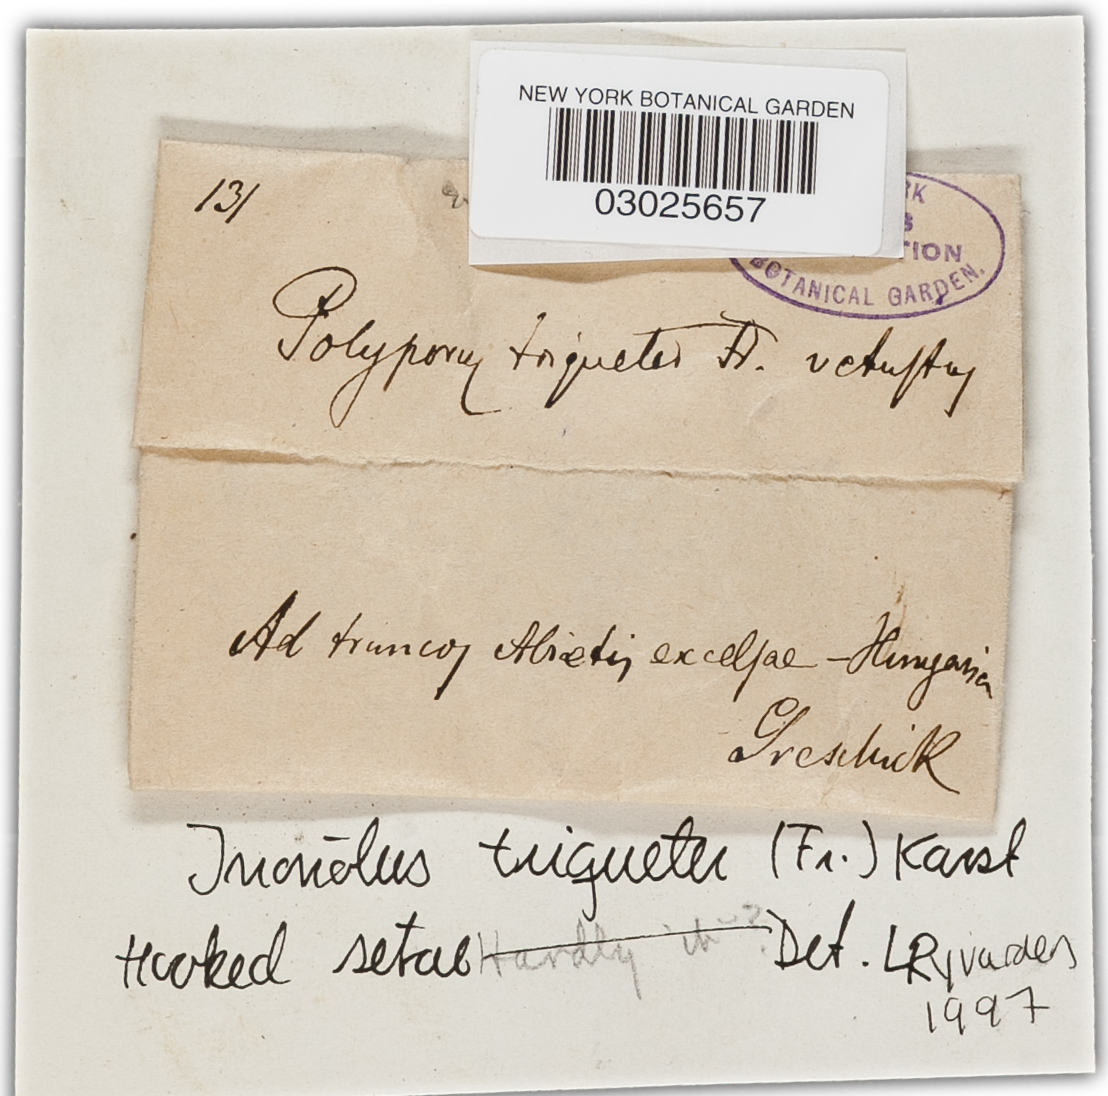 NEW YORK BOTANICAL GARDEN
03025657
131
RK
TION
BOTANICAL GARDEN.
Polyporus triqueter Fr. vetustus
Ad truncos Abietis excelsae - Hungaria
Greschik
Inonotus triqueter (Fr.) Karst
Hooked setae Hardly it? Det. L Ryvarden
1997